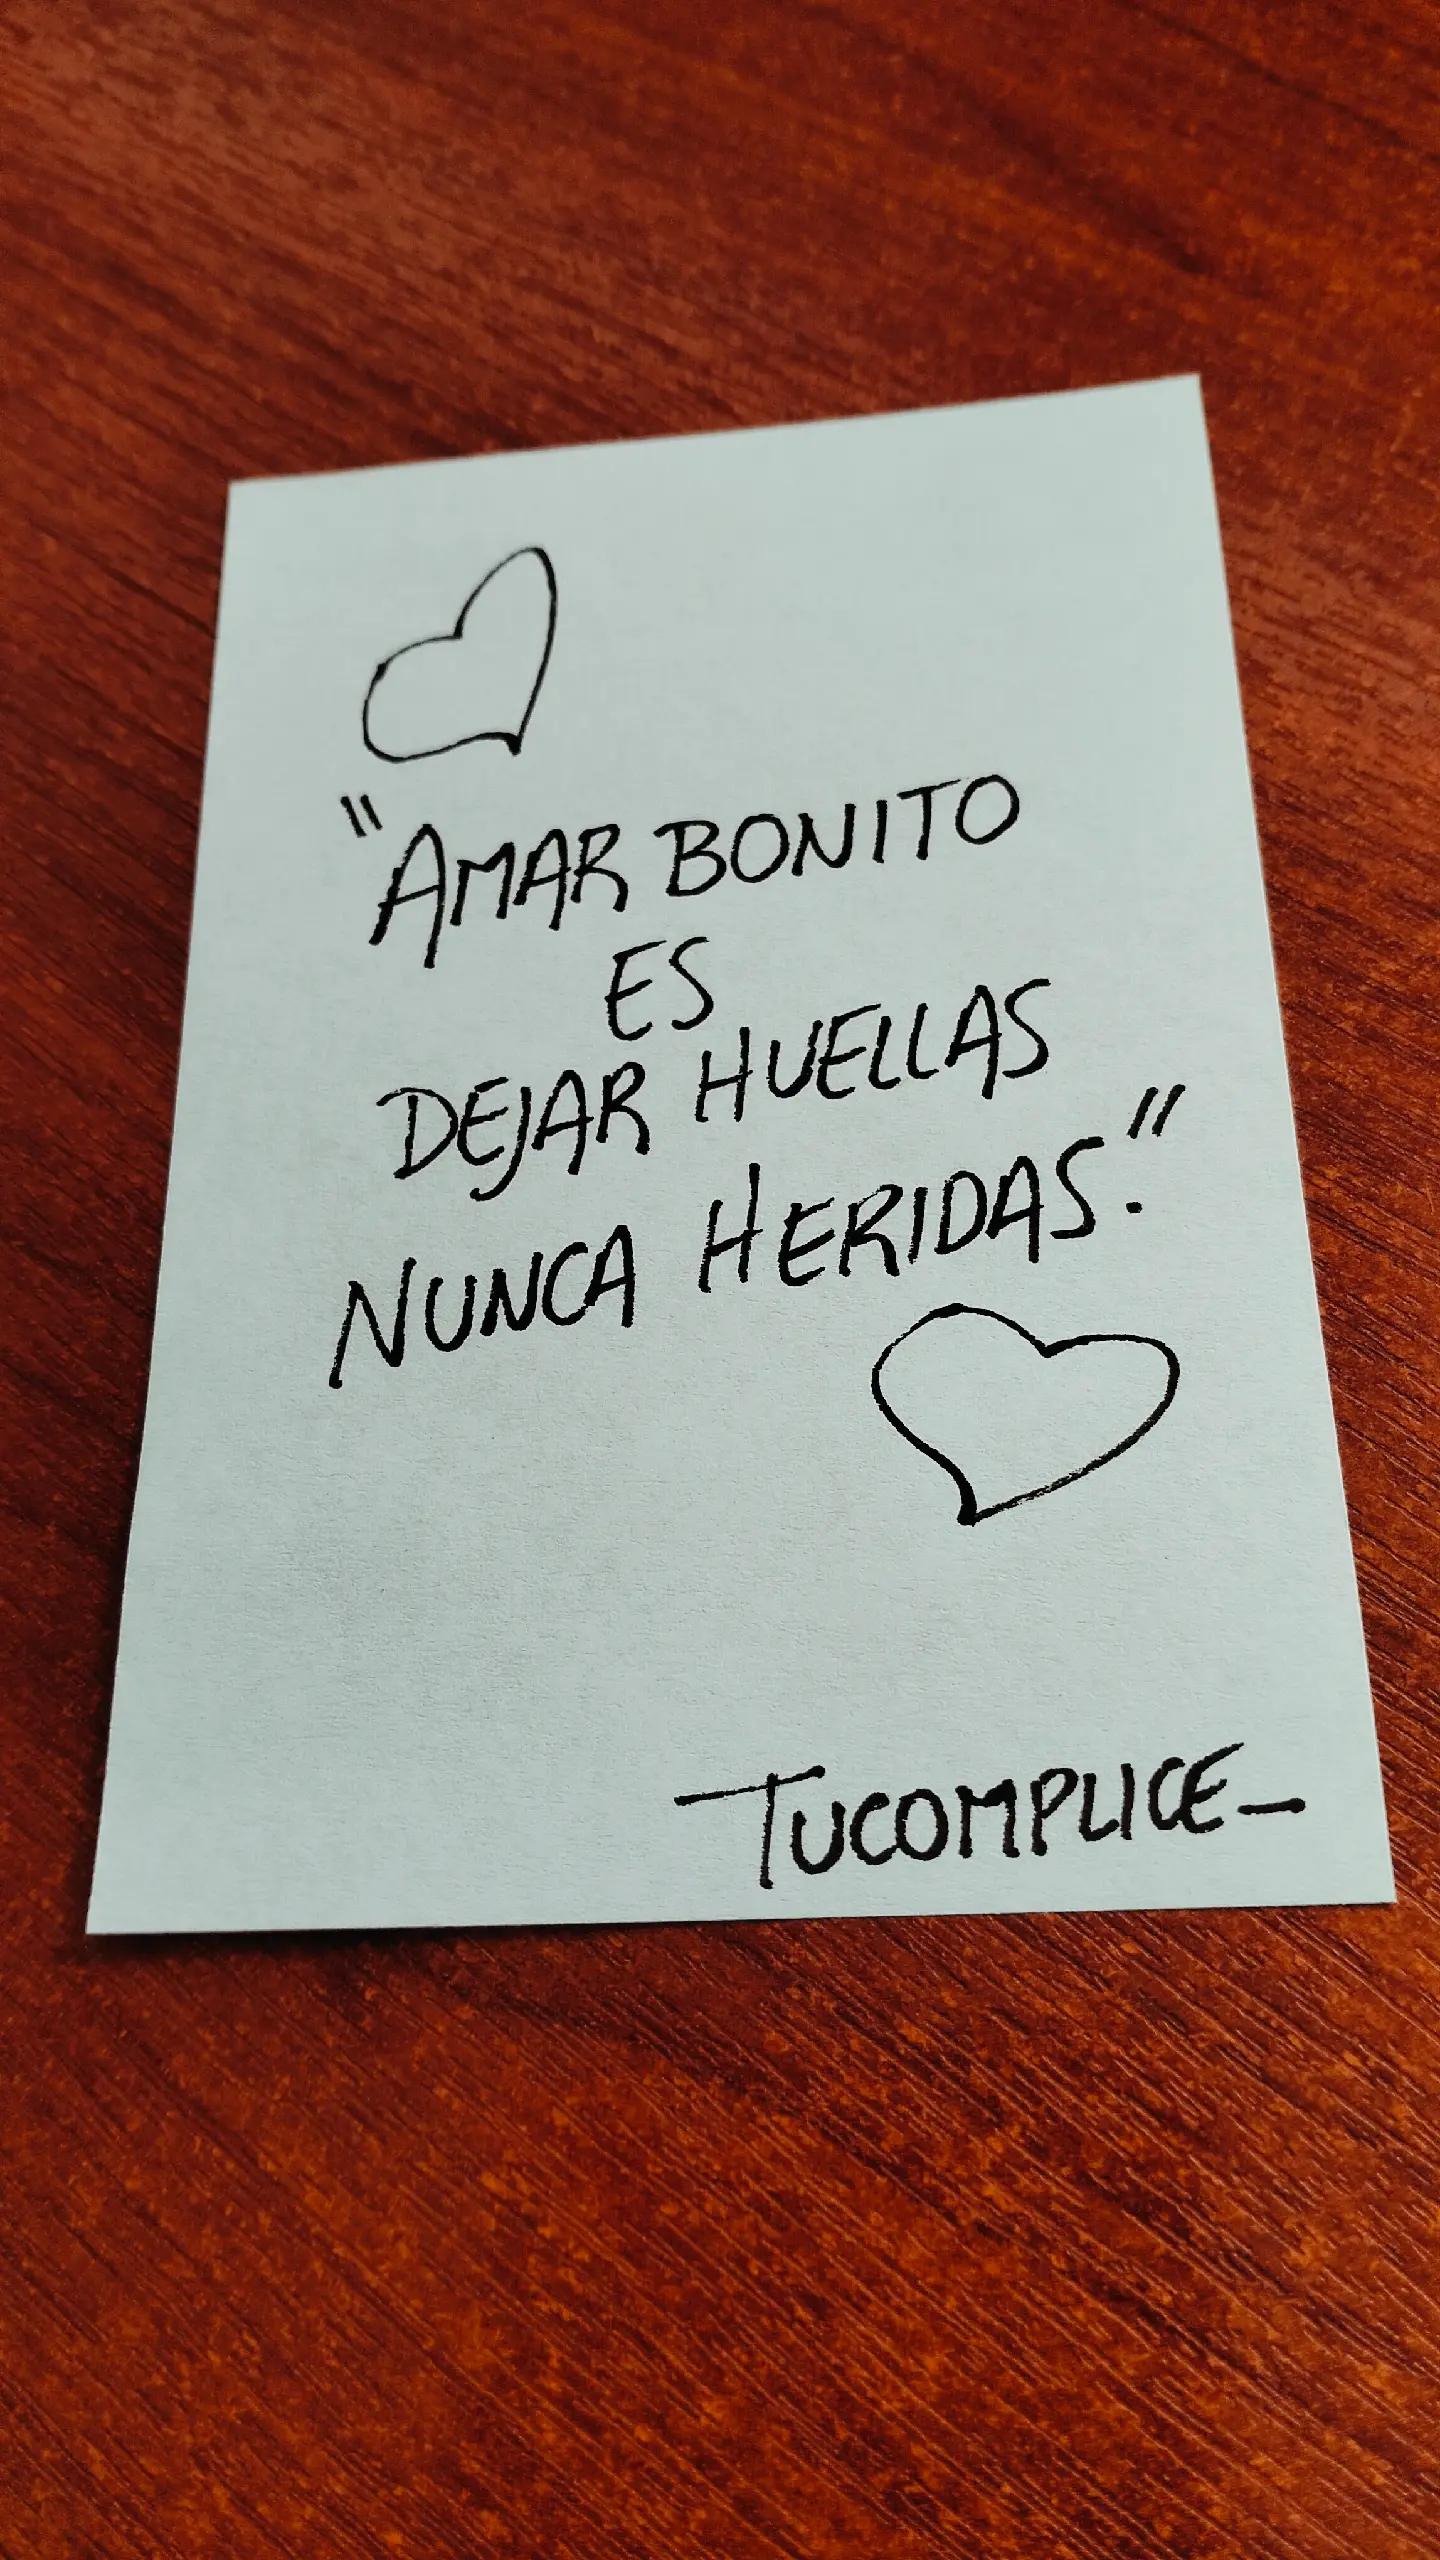 "AMAR BONITO
ES
DEJAR HUELLAS
NUNCA HERIDAS."
-TUCOMPLICE-